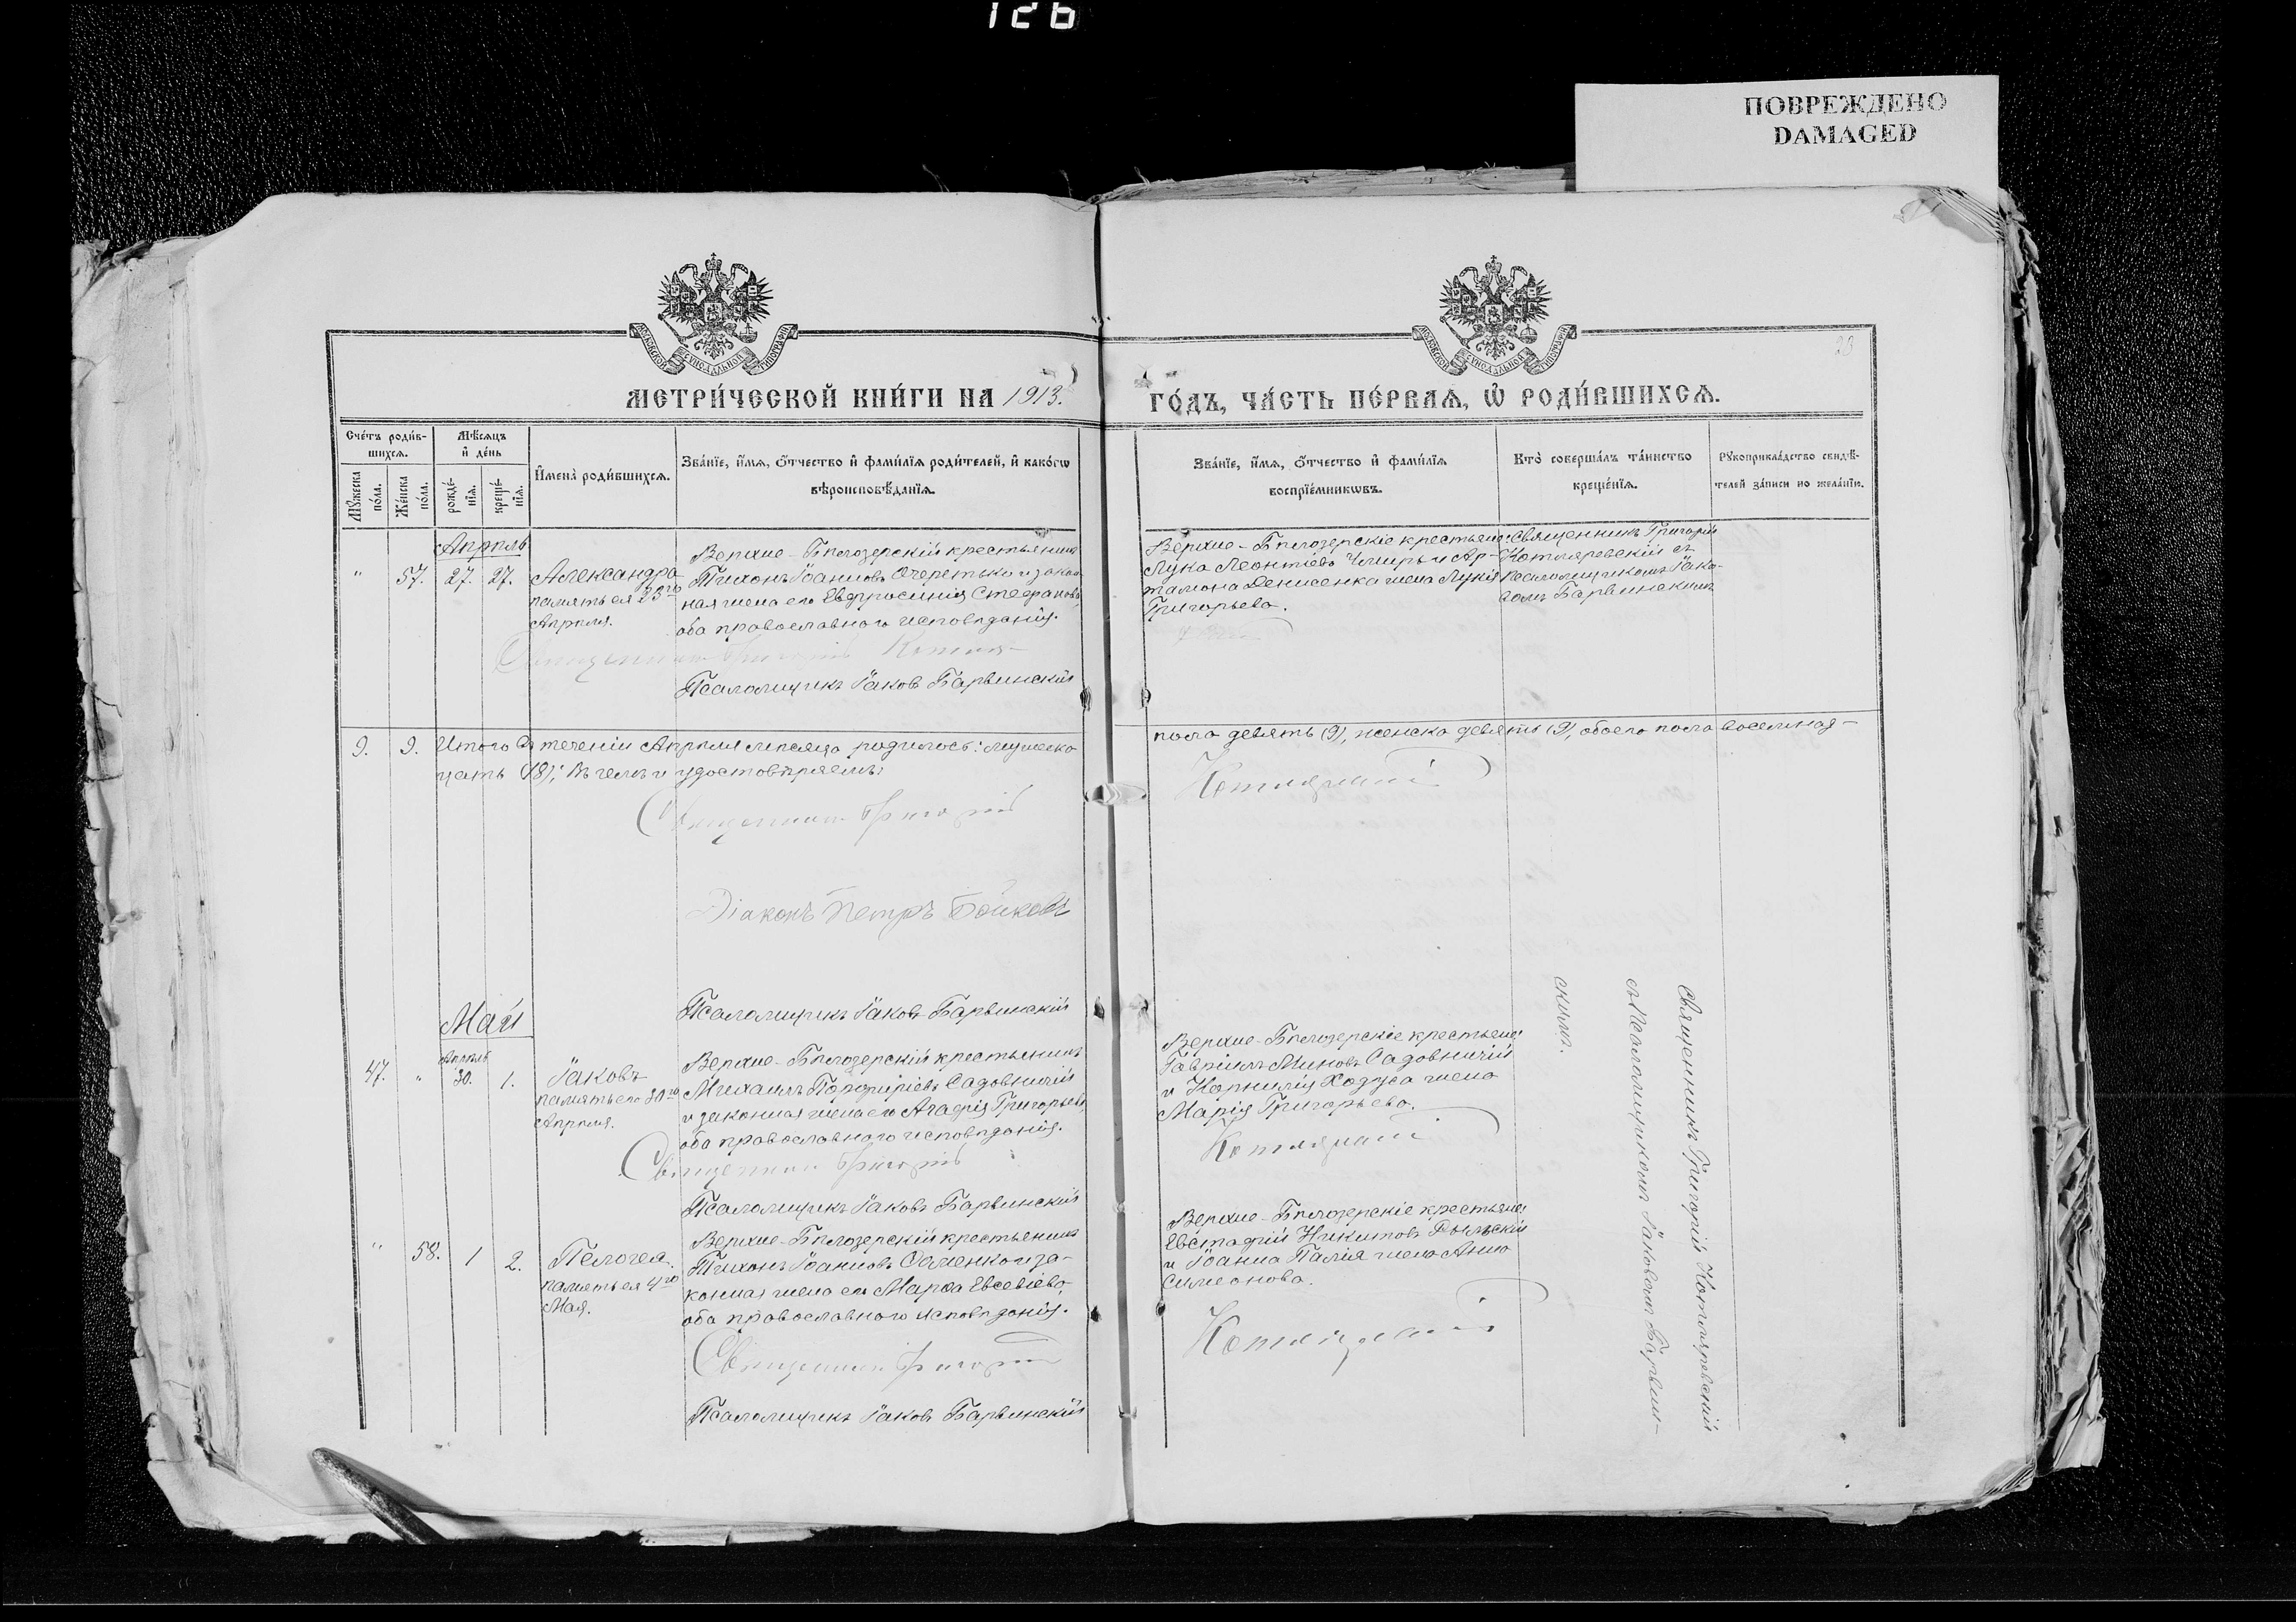 126
ПОВРЕЖДЕНО
DAMAGED
23
МОСКОВСКОЙ СУНОДАЛЬНОЙ ТИПОГРАФІИ
МОСКОВСКОЙ СУНОДАЛЬНОЙ ТИПОГРАФІИ
МЕТРИ́ЧЕСКОЙ КНИ́ГИ НА 1913.
ГО́ДЪ, ЧА́СТЬ ПЕ́РВАѦ, Ѡ҆ РОДИ́ВШИХСѦ.
Сче́тъ роди́в-
шихсѧ.
Мѣ́сѧцъ
и҆ де́нь
Мꙋ́жеска
по́ла.
Же́нска
по́ла.
рожде́-
нїѧ.
креще́-
нїѧ.
И҆мена̀ роди́вшихсѧ.
Зва́нїе, и҆́мѧ, о҆́тчество и҆ фами́лїѧ роди́телей, и҆ како́гѡ
вѣроисповѣ́данїѧ.
Зва́нїе, и҆́мѧ, о҆́тчество и҆ фами́лїѧ
воспрїе́мникѡвъ.
Кто̀ соверша́лъ та́инство
креще́нїѧ.
Рꙋкоприкла́дство свидѣ́-
телей за́писи по жела́нїю.
Апрѣль
" 57. 27. 27.
Александра
память ея 23го
Апрѣля.
Верхне-Бѣлозерскій крестьянинъ
Тихонъ Іоанновъ Очеретько и закон-
ная жена его Евфросинія Стефанова,
оба православнаго исповѣданія.
Священникъ Григорій
Псаломщикъ Іаковъ Барвинскій
Верхне-Бѣлозерскіе крестьяне:
Лука Леонтіевъ Чмиръ и Ар-
тамона Денисенка жена Лукія
Григорьева.
Священникъ Григорій
Котляревскій съ
псаломщикомъ Іако-
вомъ Барвинскимъ
9. 9. Итого въ теченіи Апрѣля мѣсяца родилось: мужеска
пола девять (9), женска девять (9), обоего пола восемнад-
цать (18); въ чемъ и удостовѣряемъ:
Священникъ Григорій
Котляревскій
Діаконъ Петръ Бойковъ
Псаломщикъ Іаковъ Барвинскій
Май
47. " Апрѣль 30. 1.
Іаковъ
память его 30го
Апрѣля.
Верхне-Бѣлозерскій крестьянинъ
Михаилъ Порфиріевъ Садовничій
и законная жена его Агафія Григорьева,
оба православнаго исповѣданія.
Священникъ Григорій
Псаломщикъ Іаковъ Барвинскій
Верхне-Бѣлозерскіе крестьяне:
Гавріилъ Миновъ Садовничій
и Корнилія Ходуса жена
Марія Григорьева.
Котляревскій
" 58. 1 2.
Пелагея
память ея 4го
Мая.
Верхне-Бѣлозерскій крестьянинъ
Тихонъ Іоанновъ и за-
конная жена его Марѳа Евсевіева,
оба православнаго исповѣданія.
Священникъ Григорій
Псаломщикъ Іаковъ Барвинскій
Верхне-Бѣлозерскіе крестьяне:
Евстафій Никитовъ Рыльскій
и Іоанна Палія жена Анна
Симеонова.
Котляревскій
Священникъ Григорій Котляревскій
съ Псаломщикомъ Іаковомъ Барвин-
скимъ.